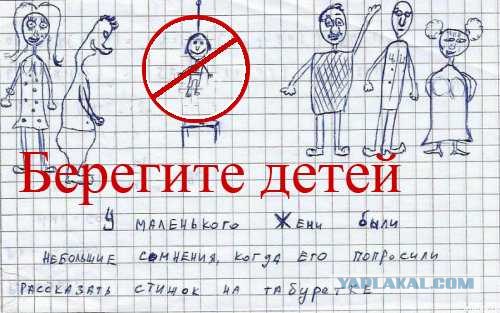 Берегите детей
У маленького Жени были
небольшие сомнения, когда его попросили
рассказать стишок на табуретке
YAPLAKAL.COM